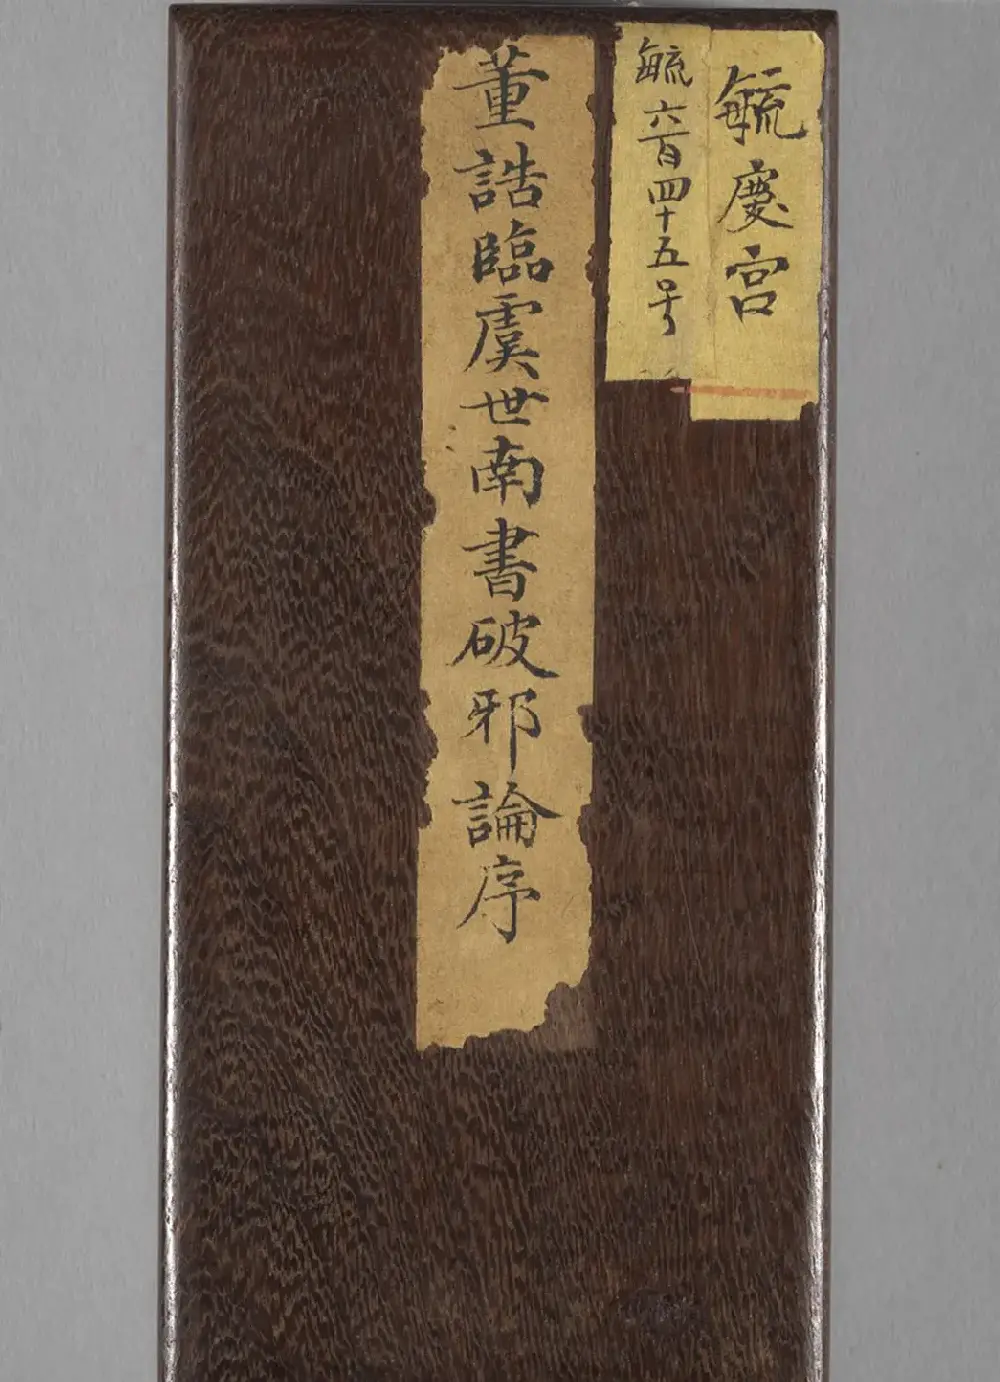 毓慶宮
毓六百四十五号
董誥臨虞世南書破邪論序